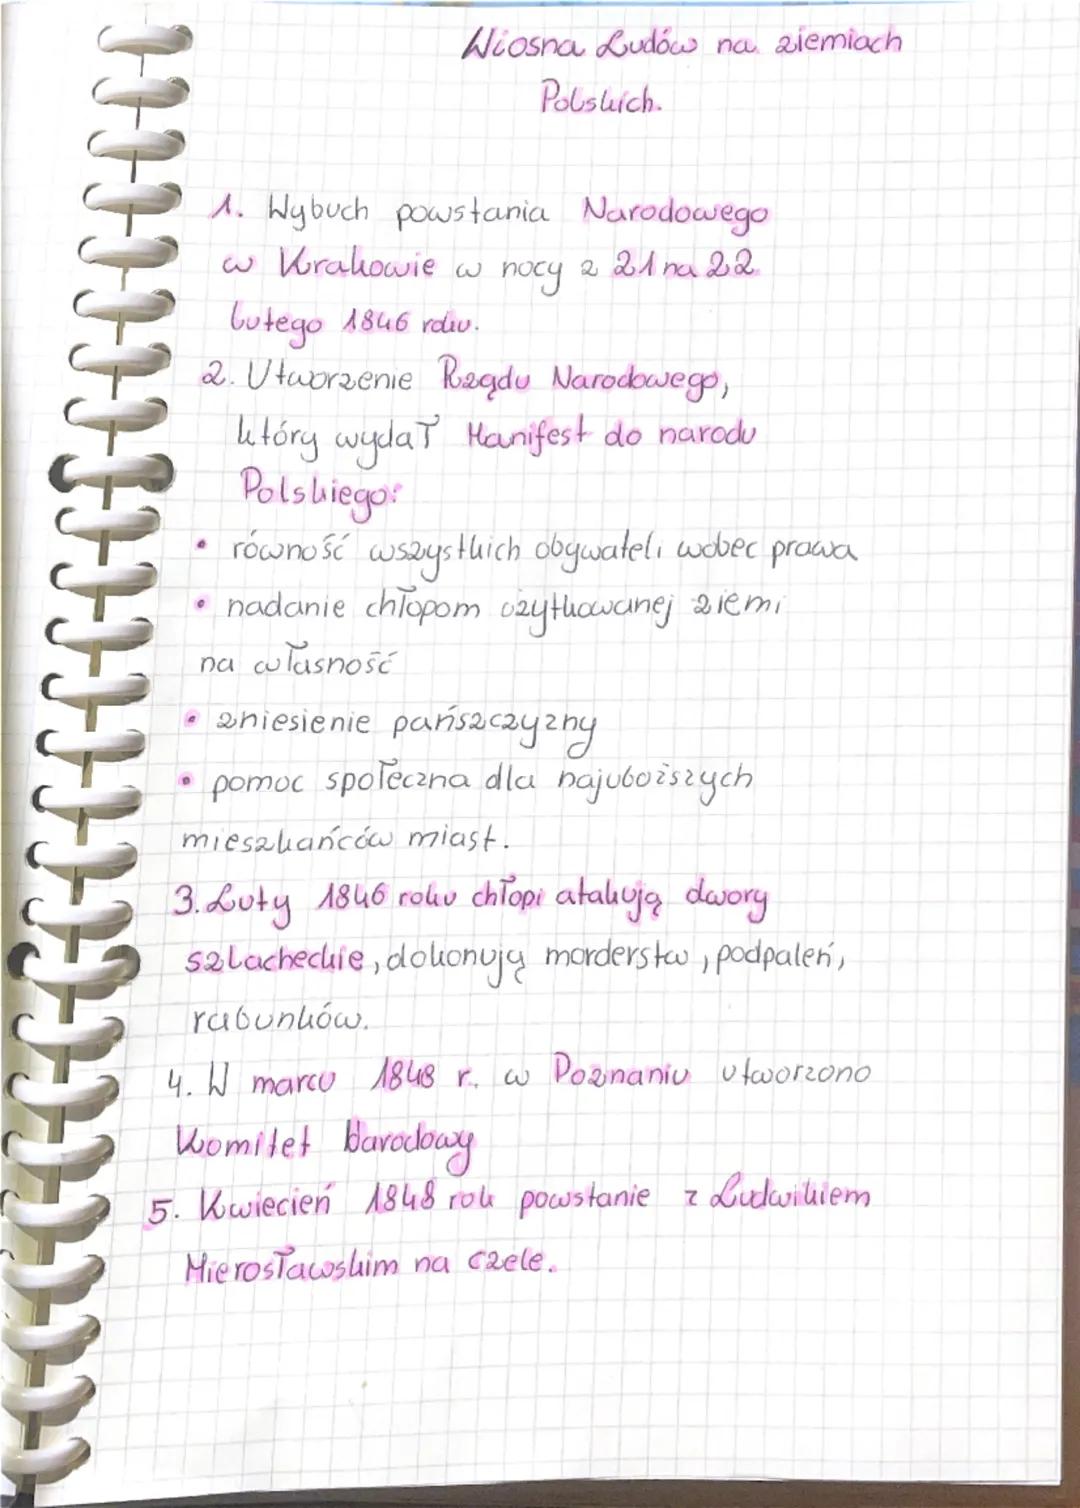 Wiosna Ludów na ziemiach
Polskich.
1. Wybuch powstania Narodowego
w Krakowie w nocy z 21 na 22
lutego 1846 roku.
2. Utworzenie Rządu Narodowego,
który wydał Manifest do narodu
Polskiego:
• równość wszystkich obywateli wobec prawa
• nadanie chłopom użytkowanej ziemi
na własność
• zniesienie pańszczyzny
• pomoc społeczna dla najuboższych
mieszkańców miast.
3. Luty 1846 roku chłopi atakują dwory
szlacheckie, dokonują morderstw, podpaleń,
rabunków.
4. W marcu 1848 r. w Poznaniu utworzono
Komitet Narodowy
5. Kwiecień 1848 rok powstanie z Ludwikiem
Mierosławskim na czele.